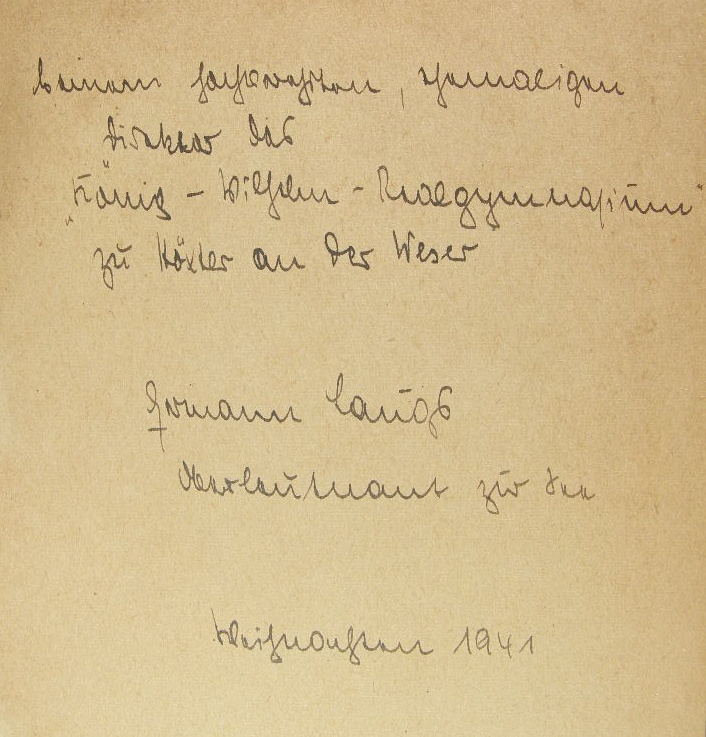 Seinem hochverehrten, ehemaligen
Direktor des
„König - Wilhelm - Realgymnasium“
zu Höxter an der Weser
Hermann Laugs
Oberleutnant zur See
Weihnachten 1941